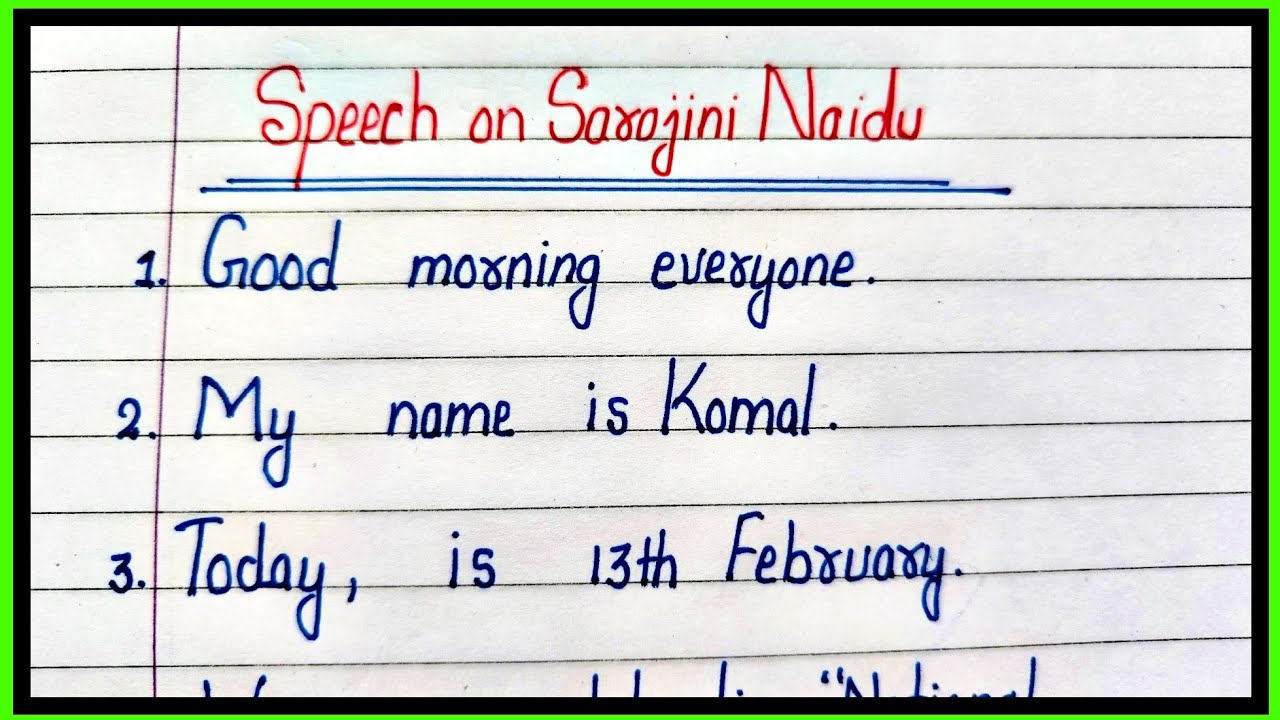 Speech on Sarojini Naidu
1. Good morning everyone.
2. My name is Komal.
3. Today, is 13th February.
"National